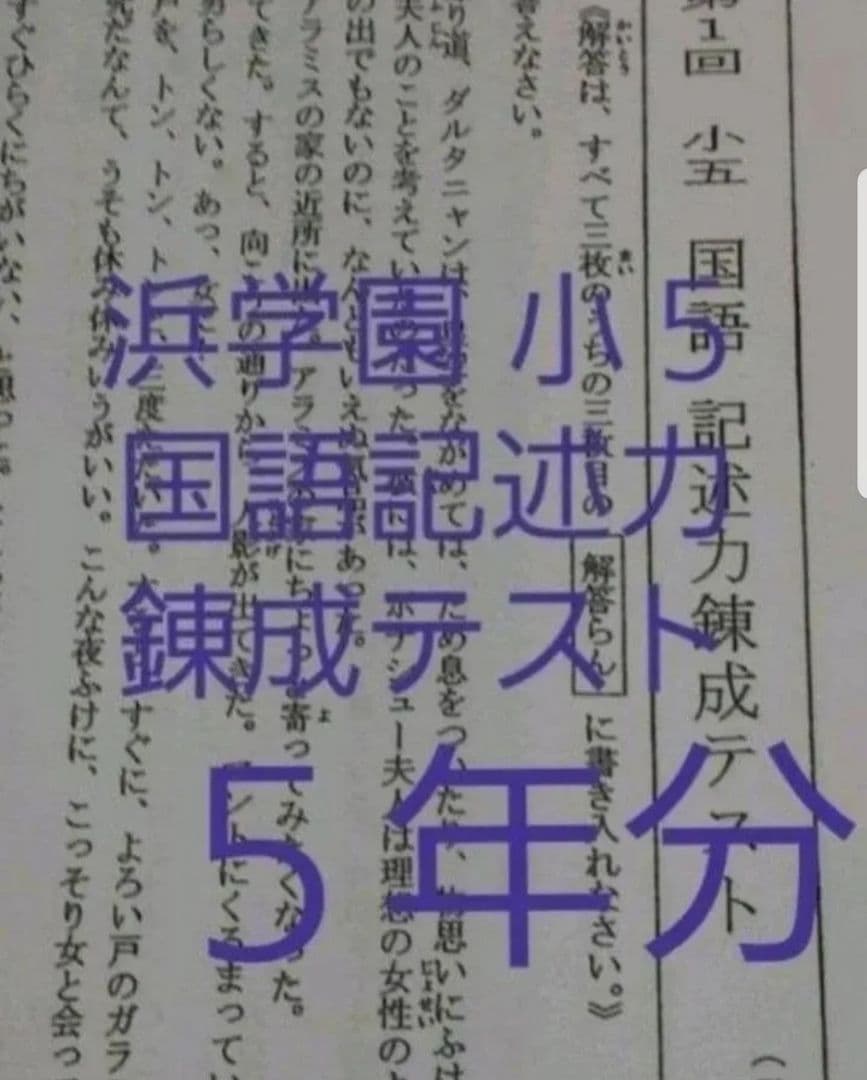 浜学園 小5
国語記述力
錬成テスト
5年分
第1回 小五 国語 記述力錬成テスト (
《解答は、すべて三枚のうちの三枚目の 解答らん に書き入れなさい。》
答えなさい。
り道、ダルタニャンは、をながめては、ため息をついたり、物思いにふけ
夫人のことを考えていたのだった。には、ボナシュー夫人は理想の女性の
の出でもないのに、なんともいえぬ気品があった。
アラミスの家の近所に出た。アラミスのにちょっと寄ってみたくなった。
てきた。すると、向こうの通りから、人影が出てきた。マントにくるまってい
男らしくない。あっ、
戸を、トン、トン、トと、三度たたいた。すぐに、よろい戸のガラ
だなんて、うそも休み休みいうがいい。こんな夜ふけに、こっそり女と会っ
すぐひらくにちがいない、と思った。